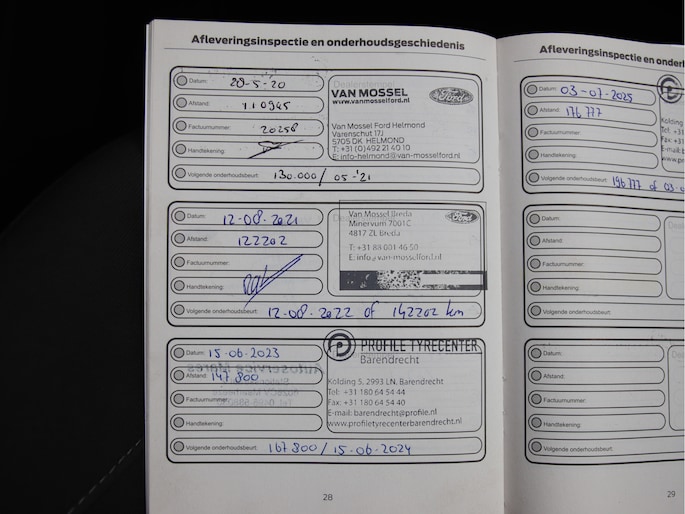 Afleveringsinspectie en onderhoudsgeschiedenis
Datum: 28-5-20
Afstand: 110945
Factuurnummer: 20258
Handtekening:
Volgende onderhoudsbeurt: 130.000 / 05-'21
VAN MOSSEL
www.vanmosselford.nl
Ford
Van Mossel Ford Helmond
Varenschut 17J
5705 DK HELMOND
T: +31 (0)492 21 40 10
E: info-helmond@van-mosselford.nl
Datum: 12-08-2021
Afstand: 122202
Factuurnummer:
Handtekening:
Volgende onderhoudsbeurt: 12-08-2022 of 142202 km
Van Mossel Breda
Minervum 7001C
4817 ZL Breda
T: +31 88 001 46 50
E: info@van-mosselford.nl
Ford
Datum: 15-06-2023
Afstand: 147 800
Factuurnummer:
Handtekening:
Volgende onderhoudsbeurt: 167 800 / 15-06-2024
PROFILE TYRECENTER
Barendrecht
Kolding 5, 2993 LN, Barendrecht
Tel: +31 180 64 54 44
Fax: +31 180 64 54 40
E-mail: barendrecht@profile.nl
www.profiletyrecenterbarendrecht.nl
28
Afleveringsinspectie en
Datum: 03-07-2025
Afstand: 176 777
Factuurnummer:
Handtekening:
Volgende onderhoudsbeurt: 196 777 of 03-
Kolding
Tel: +31
Fax: +31
E-mail: b
www.pro
Datum:
Afstand:
Factuurnummer:
Handtekening:
Volgende onderhoudsbeurt:
Datum:
Afstand:
Factuurnummer:
Handtekening:
Volgende onderhoudsbeurt:
29